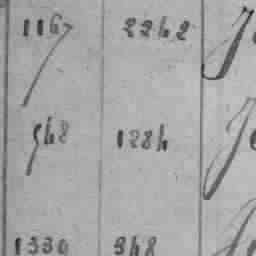 1167 2242 J
548 1284 Je
1330 348 Je